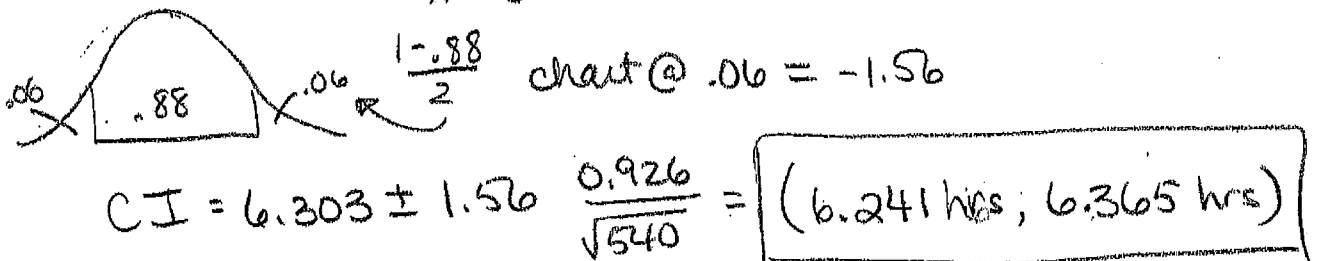 .06 .88 .06 1-.88/2 chart @ .06 = -1.56
CI = 6.303 ± 1.56 0.926/√540 = (6.241 hrs; 6.365 hrs)